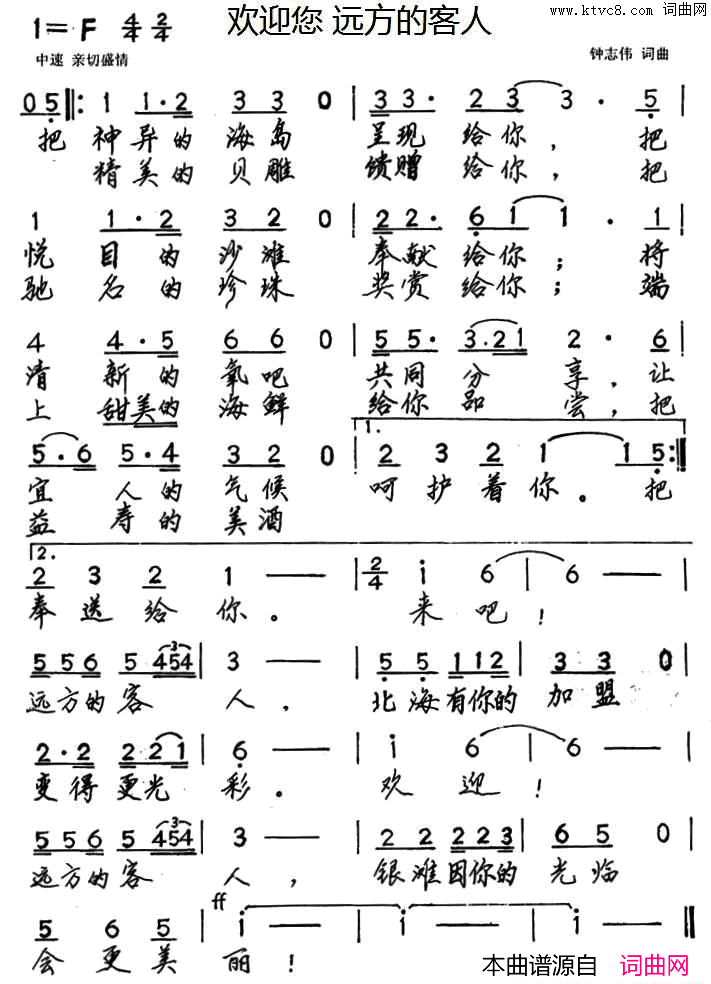 欢迎您 远方的客人
www.ktvc8.com 词曲网
1=F 4/4 2/4
中速 亲切盛情
钟志伟 词曲
05 1 1·2 3 3 0 3 3· 2 3 3· 5
把 神异的 海岛 呈现 给你，把
精美的 贝雕 馈赠 给你，把
1 1·2 3 2 0 2 2· 6 1 1· 1
悦 目的 沙滩 奉献 给你；将
驰 名的 珍珠 奖赏 给你；端
4 4·5 6 6 0 5 5· 3.21 2· 6
清 新的 氧吧 共同 分 享，让
上 甜美的 海鲜 给你 品 尝，把
1.
5.6 5·4 3 2 0 2 3 2 1 1 5
宜 人的 气候 呵护着你。把
益 寿的 美酒
2.
2 3 2 1 — 2/4 i 6 6 —
奉送给你。 来吧！
5 5 6 5 454 3 — 5 5 112 3 3 0
3
远方的客 人， 北海有你的 加盟
2·2 2 2 1 6 — i 6 6 —
变得更光 彩。 欢迎！
5 5 6 5 454 3 — 2 2 2 2 3 6 5 0
3
远方的客 人， 银滩因你的 光临
ff
5 6 5 i — i — i — i —
会更美 丽！
本曲谱源自 词曲网